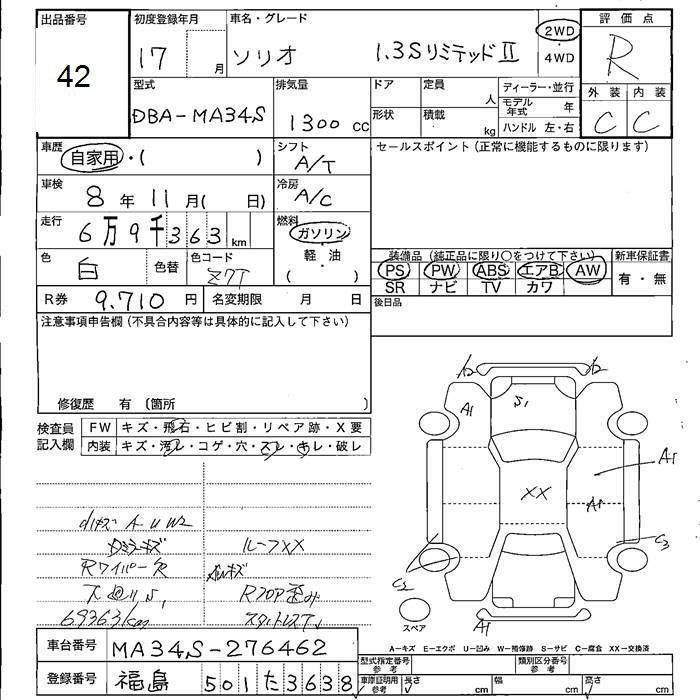 出品番号
42
初度登録年月
17 月
車名・グレード
ソリオ 1.3SリミテッドⅡ
2WD
・
4WD
評価点
R
外装 内装
C C
型式
DBA-MA34S
排気量
1300 cc
ドア
形状
定員 人
積載 kg
ディーラー・並行
モデル年式 年
ハンドル 左・右
車歴
自家用・( )
シフト
A/T
セールスポイント(正常に機能するものに限ります)
車検
8 年 11 月( 日)
冷房
A/C
走行
6万9千363 km
燃料
ガソリン
・
軽・油
( )
色
白
色替
色コード
Z7T
装備品(純正品に限り○をつけて下さい)
PS PW ABS エアB AW
SR ナビ TV カワ
新車保証書
有・無
R券 9.710 円
名変期限 月 日
後日品
注意事項申告欄(不具合内容等は具体的に記入して下さい)
修復歴 有〔箇所 〕
検査員記入欄
FW キズ・飛石・ヒビ割・リペア跡・X要
内装 キズ・汚レ・コゲ・穴・スレ・キレ・破レ
A U W2
ルーフXX
Rワイパー欠
Rフロア歪み
69363km
A2
A1
S1
XX
A1
A1
C3
C2
A1
スペア
A-キズ E-エクボ U-凹み W-補修跡 S-サビ C-腐食 XX-交換済
車台番号
MA34S-276462
登録番号
福島 501 た 3638
型式指定番号
参考
類別区分番号
参考
車庫証明用
参考
長さ cm
幅 cm
高さ cm